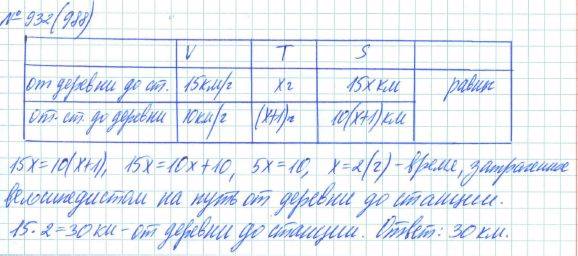 № 932 (988)
V T S
от деревни до ст. 15км/ч х ч 15х км равны
от ст. до деревни 10км/ч (х+1)ч 10(х+1) км
15х=10(х+1), 15х=10х+10, 5х=10, х=2(ч) - время, затраченное
велосипедистом на путь от деревни до станции.
15·2=30 км - от деревни до станции. Ответ: 30 км.